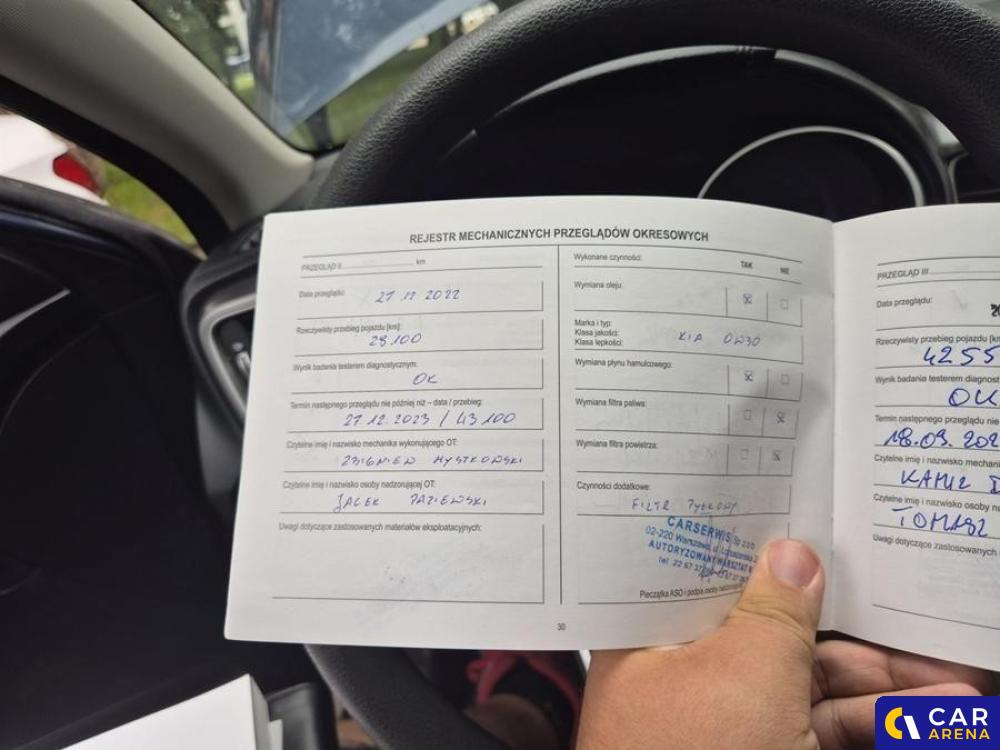 REJESTR MECHANICZNYCH PRZEGLĄDÓW OKRESOWYCH
PRZEGLĄD II ........................ km
Data przeglądu: 27 12 2022
Rzeczywisty przebieg pojazdu [km]:
28.100
Wynik badania testerem diagnostycznym:
OK
Termin następnego przeglądu nie później niż – data / przebieg:
27.12.2023 / 43.100
Czytelne imię i nazwisko mechanika wykonującego OT:
ZBIGNIEW MYSTKOWSKI
Czytelne imię i nazwisko osoby nadzorującej OT:
JACEK PAZIEWSKI
Uwagi dotyczące zastosowanych materiałów eksploatacyjnych:
Wykonane czynności: TAK NIE
Wymiana oleju:
Marka i typ:
Klasa jakości:
Klasa lepkości: KIA 0W30
Wymiana płynu hamulcowego:
Wymiana filtra paliwa:
Wymiana filtra powietrza:
Czynności dodatkowe:
FILTR PYŁKOWY
CARSERWIS Sp z o.o.
02-220 Warszawa, ul.
AUTORYZOWANY WARSZTAT
tel 22 57 37
Pieczątka ASO i podpis osoby
30
PRZEGLĄD III
Data przeglądu:
Rzeczywisty przebieg pojazdu [k
4255
Wynik badania testerem diagnos
OK
Termin następnego przeglądu nie
18.09.202
Czytelne imię i nazwisko mechani
KAMIL
Czytelne imię i nazwisko osoby n
TOMASZ
Uwagi dotyczące zastosowanych
CAR
ARENA